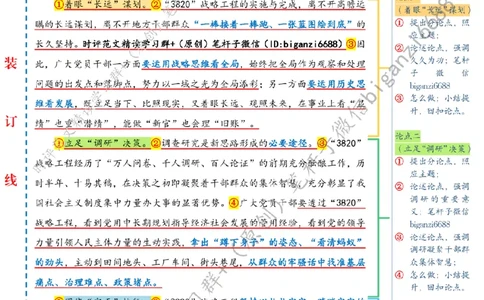 ①着眼"长远"谋划。②"3820"战略工程的实施与完成，离不开高瞻远
瞩的长远谋划，离不开地方干部群众“一棒接着一棒跑、一张蓝图绘到底”的
长久坚持。时评范文精读学习群+（原创）笔杆子微信（ID:biganzi6688）③因
此，广大党员干部一方面要运用战略思维看全局，始终把全局作为观察和处理
问题的出发点和落脚点，努力以一域之光为全局添彩；另一方面要运用历史思
维看发展，既立足当下、比照现实，又着眼长远、观照未来，在事业上看“显
绩”也重“潜绩”，能做“新官”也会理“旧账”。
①立足“调研”决策。②调查研究是新思路形成的必要途径。③“3820”
战略工程经历了“万人问卷、千人调研、百人论证”的前期充分酝酿工作，历
时半年、十易其稿，在决策之初即凝聚着干部群众的集体智慧，充分彰显了我
国社会主义制度集中力量办大事的显著优势。④广大党员干部要透过“3820”
战略工程，看到党用中长期规划指导经济社会发展的管用经验，看到党的领导
力量引领人民主体力量的生动实践，拿出“蹲下身子”的姿态、“看清蚂蚁”
的劲头，主动到田间地头、工厂车间、街头巷尾，从群众的牢骚话中找准基层
痛点、治理难点、政策堵点。
装
订
线
（着眼“长远”谋划）
① 提出分论点，照
应主题；
② 论述论点，强调
久久为功；笔杆
子微信
biganzi6688
③ 怎么做；小结提
升，回扣论点。
论点二
（立足“调研”决策）
① 提出分论点，照
应主题；
② 论述论点，强调
调研的重要意
义；笔杆子微信
biganzi6688
③ 论述论点，强调
调研凝聚干部群
众集体智慧；
④ 怎么做；小结提
升，回扣论点。